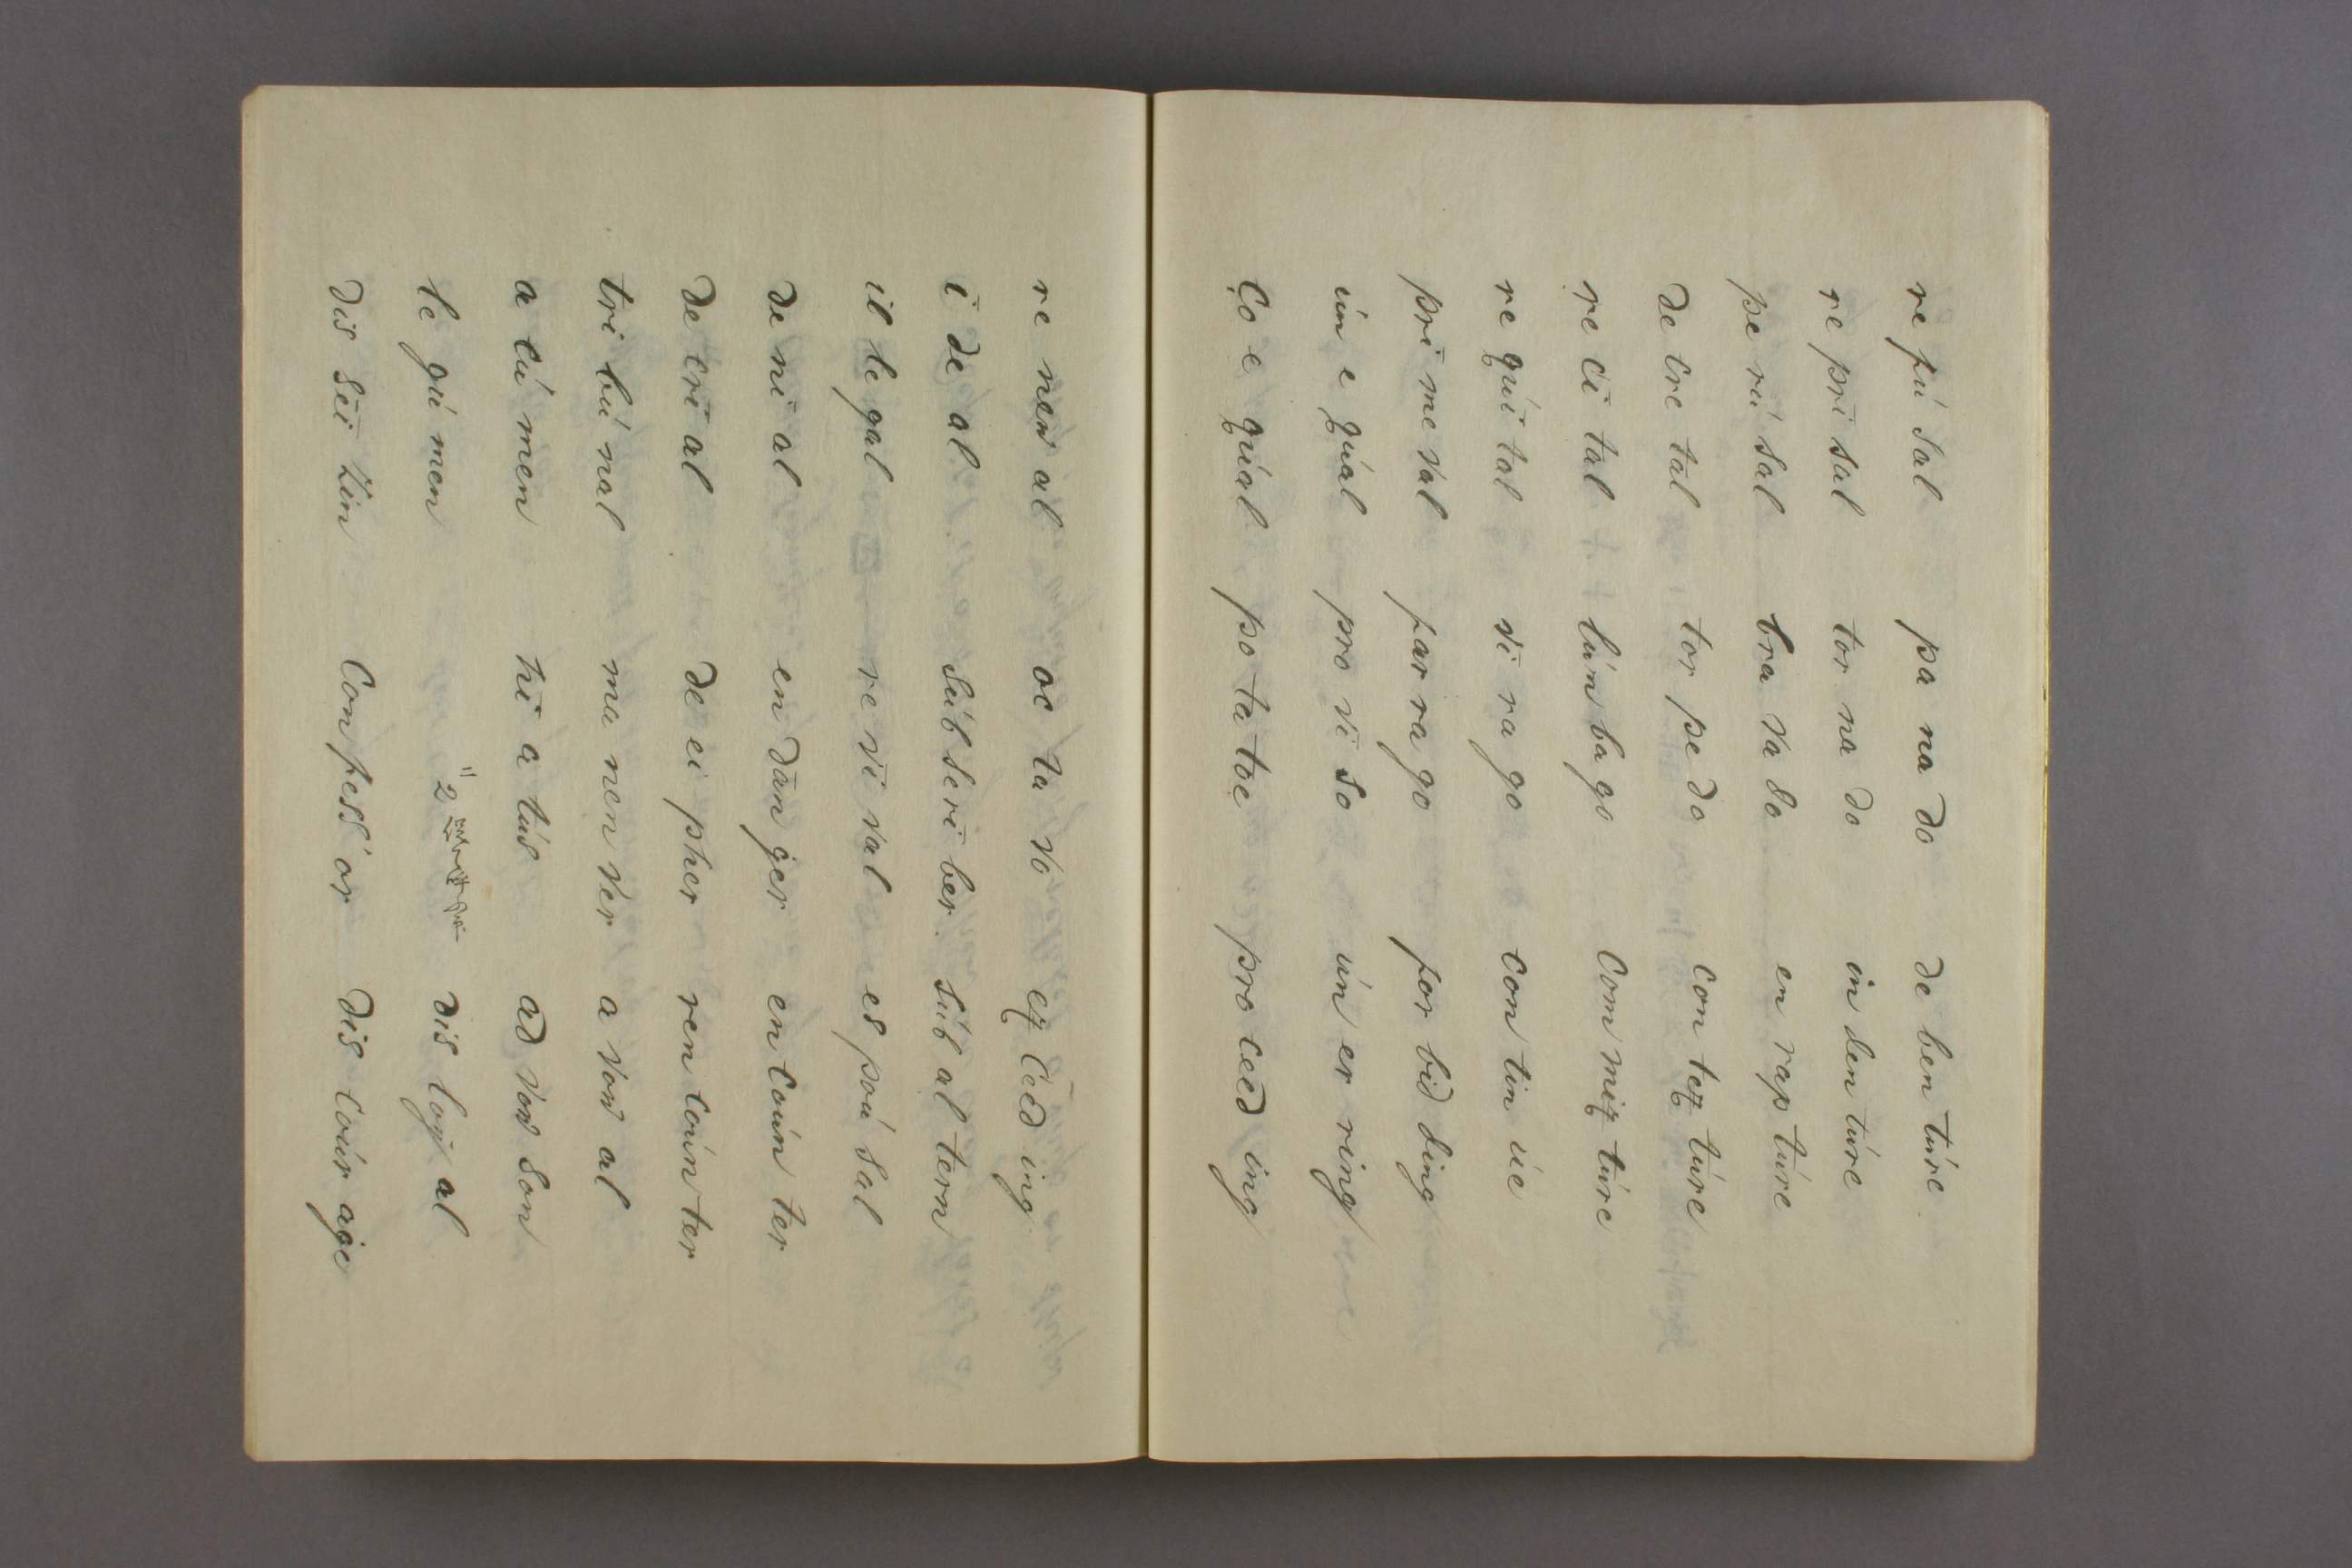 re fú sal pa na do de ben túre
re prī sal tor na do in den túre
pe rú sal bra va do en rap túre
de cre tal tor pe do con tex túre
re cī tal lúm ba go com mix túre
re qúī tal vī ra go con tin úe
prī me val far ra go for bid ding
ún e qúal pro vī so ún er ring
Co e qúal po ta toe pro ceed ing
re new al oc ta vo ex ceed ing
ī de al súb scrī ber súb al tern
il le gal re vī val es poú sal
de nī al en dān ger en coún ter
de crī al de cī pher ren coún ter
tri bú nal ma neú ver a vow al
a cú men hī a tús ad vow son
le gú men dis loy al
dis sēi zin Con fess ór dis coúr age